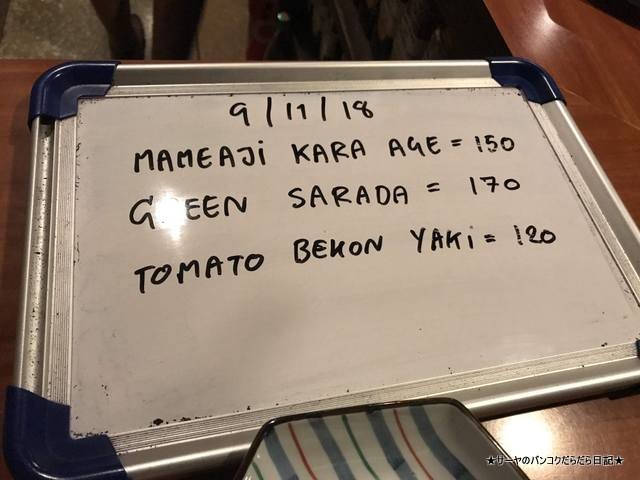 9/11/18
MAMEAJi KARA AGE = 150
GREEN SARADA = 170
TOMATO BEKON YAKi = 120
★サーヤのバンコクだらだら日記★